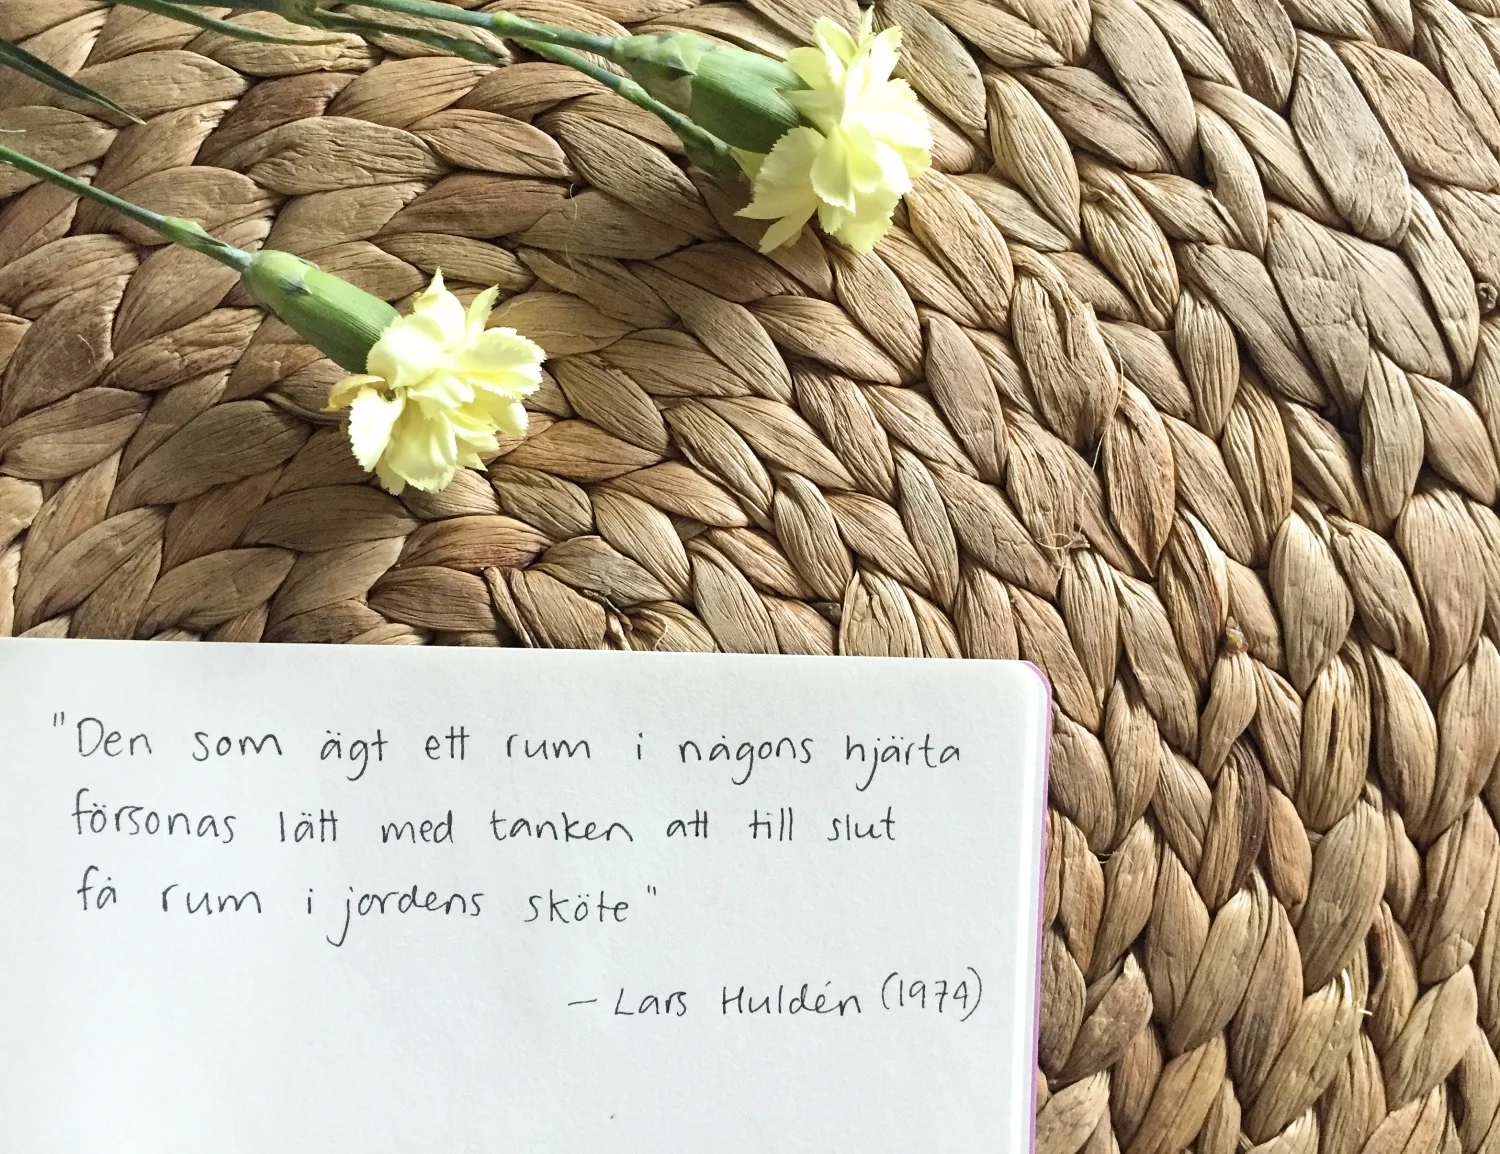 "Den som ägt ett rum i någons hjärta
försonas lätt med tanken att till slut
få rum i jordens sköte"
– Lars Huldén (1974)